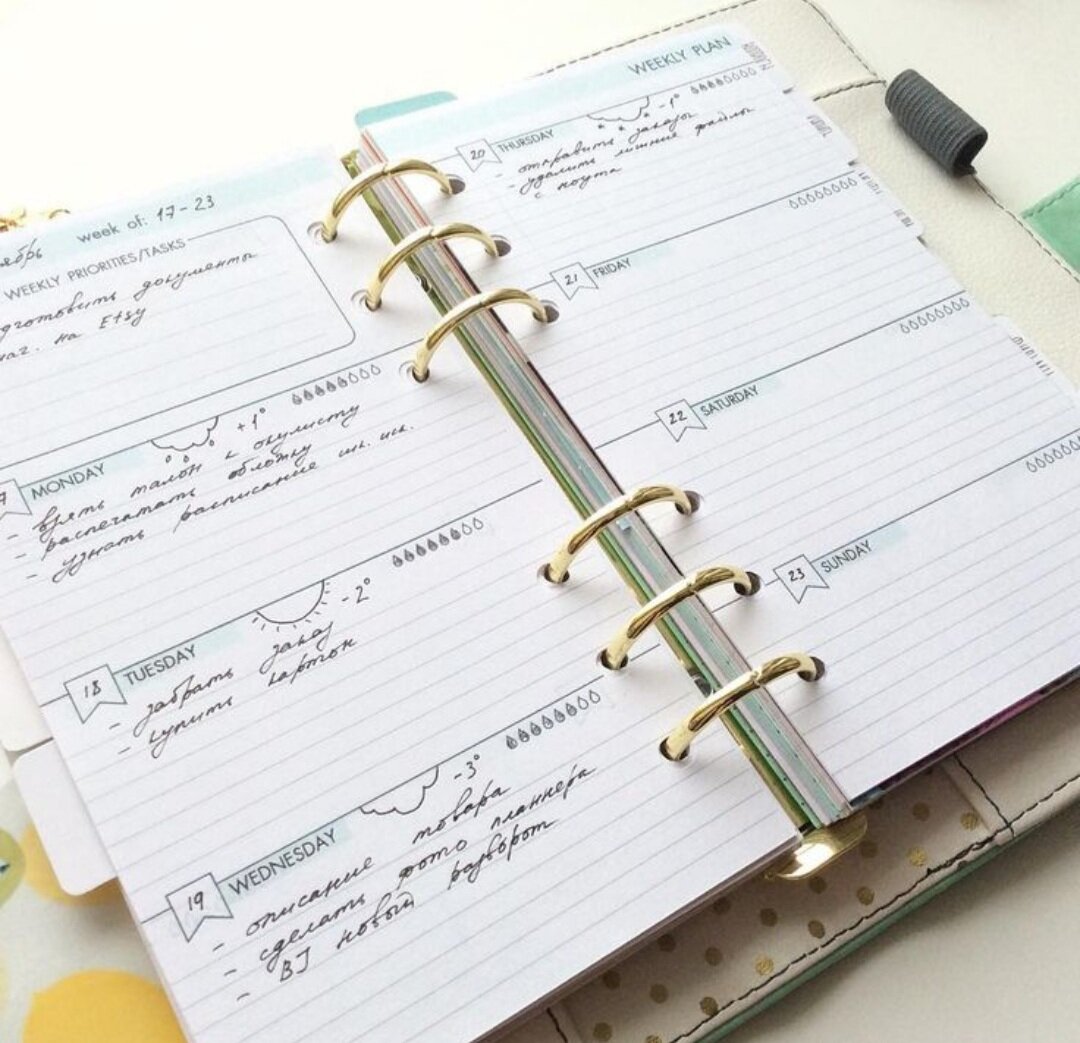 week of: 17-23
WEEKLY PRIORITIES/TASKS
документы
на Etsy
MONDAY
+1°
- взять талон к окулисту
- распечатать обложку
- узнать расписание
18 TUESDAY
-2°
- забрать заказ
- купить картон
19 WEDNESDAY
-3°
- описание товара
- сделать фото планнера
- BJ новый разворот
WEEKLY PLAN
20 THURSDAY
-1°
- отправить заказы
- удалить лишние файлы
с ноута
21 FRIDAY
22 SATURDAY
23 SUNDAY